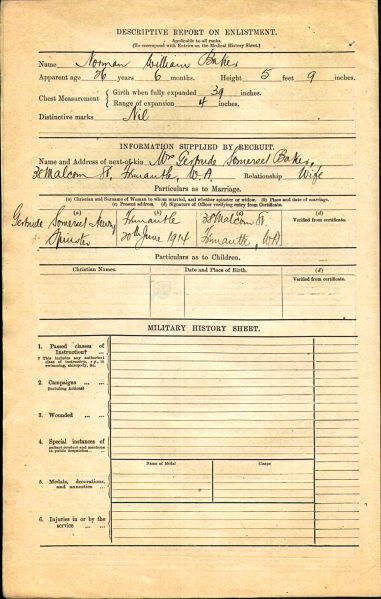 DESCRIPTIVE REPORT ON ENLISTMENT.
Applicable to all ranks.
(To correspond with Entries on the Medical History Sheet.)
Name Norman William Baker
Apparent age 26 years 6 months. Height 5 feet 9 inches.
Chest Measurement { Girth when fully expanded 39 inches.
Range of expansion 4 inches.
Distinctive marks Nil
INFORMATION SUPPLIED BY RECRUIT.
Name and Address of next-of-kin Mrs Gertrude Somerset Baker,
38 Malcom St, Fremantle, W.A. Relationship Wife
Particulars as to Marriage.
(a) Christian and Surname of Woman to whom married, and whether spinster or widow. (b) Place and date of marriage.
(c) Present address. (d) Signature of Officer verifying entry from Certificate.
(a) (b) (c) (d)
Verified from certificate.
Gertrude Somerset Fremantle 38 Malcom St.
Spinster 20th June 1914 Fremantle, W.A.
Particulars as to Children.
Christian Names. Date and Place of Birth. (d)
Verified from certificate.
MILITARY HISTORY SHEET.
1. Passed classes of
Instruction†
† This includes any authorized
class of instruction, e.g., in
swimming, chiropody, &c.
2. Campaigns
(including Actions)
3. Wounded
4. Special instances of
gallant conduct and mentions
in public despatches
Name of Medal Clasps
5. Medals, decorations,
and annuities
6. Injuries in or by the
service